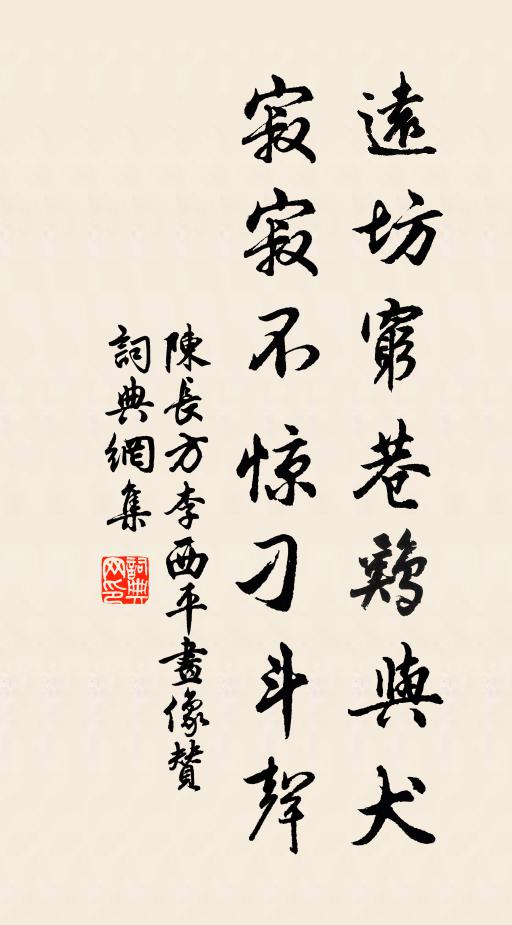 遠坊窮巷鷄與犬
寂寂不惊刁斗聲
陳長方李西平畫像贊
詞典網集
詞典
网印